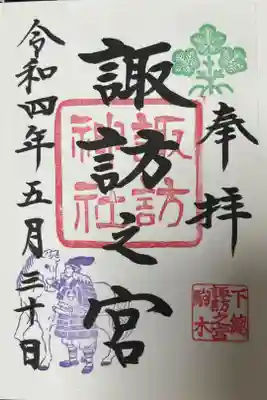 奉拝
諏訪之宮
諏訪
神社
令和四年五月三十日
下総
諏訪之宮
駒木